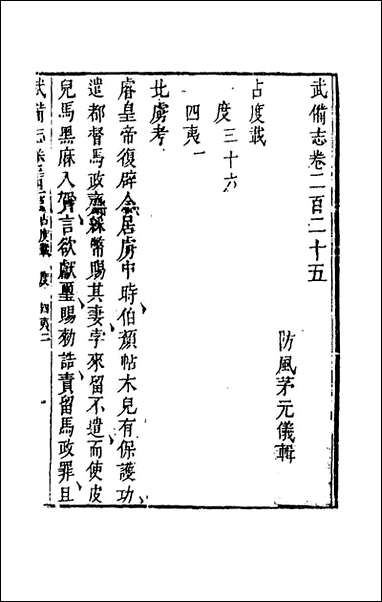 武備志卷二百二十五
防風茅元儀輯
占度載
度三十六
四夷一
北虜考
睿皇帝復辟念居虜中時伯顏帖木兒有保護功
遣都督馬政齎綵幣賜其妻孛來留不遣而使皮
兒馬黑麻入賀言欲獻璽賜勑誥責留馬政罪且
武備志卷二百二十五 占度載 度 四夷二 一